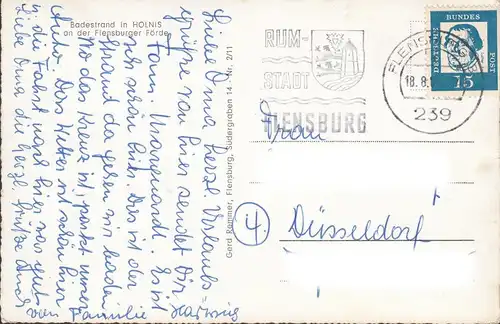 Badestrand in HOLNIS
an der Flensburger Förde
Liebe Oma herzl. Urlaubs
grüße von hier sendet Dir
Fam. Marquardt. Es ist
sehr schön hier. Das ist der
Strand da gehen wir baden
Wo das Kreuz ist, parkt unser
Auto. Das Wetter ist schön hier
u. die Fahrt nach hier war gut.
Liebe Oma die herzl. Grüße Auch
von Familie Hartwig
Gerd Remmer, Flensburg, Südergraben 14 - Nr. 2/11
RUM-
STADT
FLENSBURG
FLENSBURG
18.8.
239
DEUTSCHE
BUNDES
POST
15
Frau
4 Düsseldorf